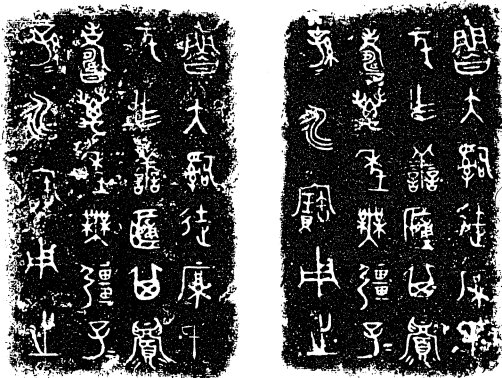 魯大𤔲徒厚氏
元乍善其眉
壽萬年無疆子
孫永寶用之
魯大𤔲徒厚氏
元乍善其眉
壽萬年無疆子
孫永寶用之